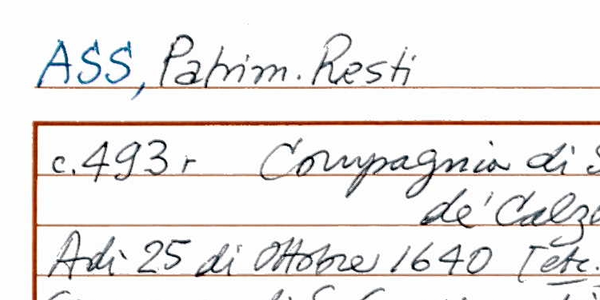 ASS, Patrim. Resti
c. 493 r Compagnia di S
de' Calzo
Adi 25 di Ottobre 1640 [etc.